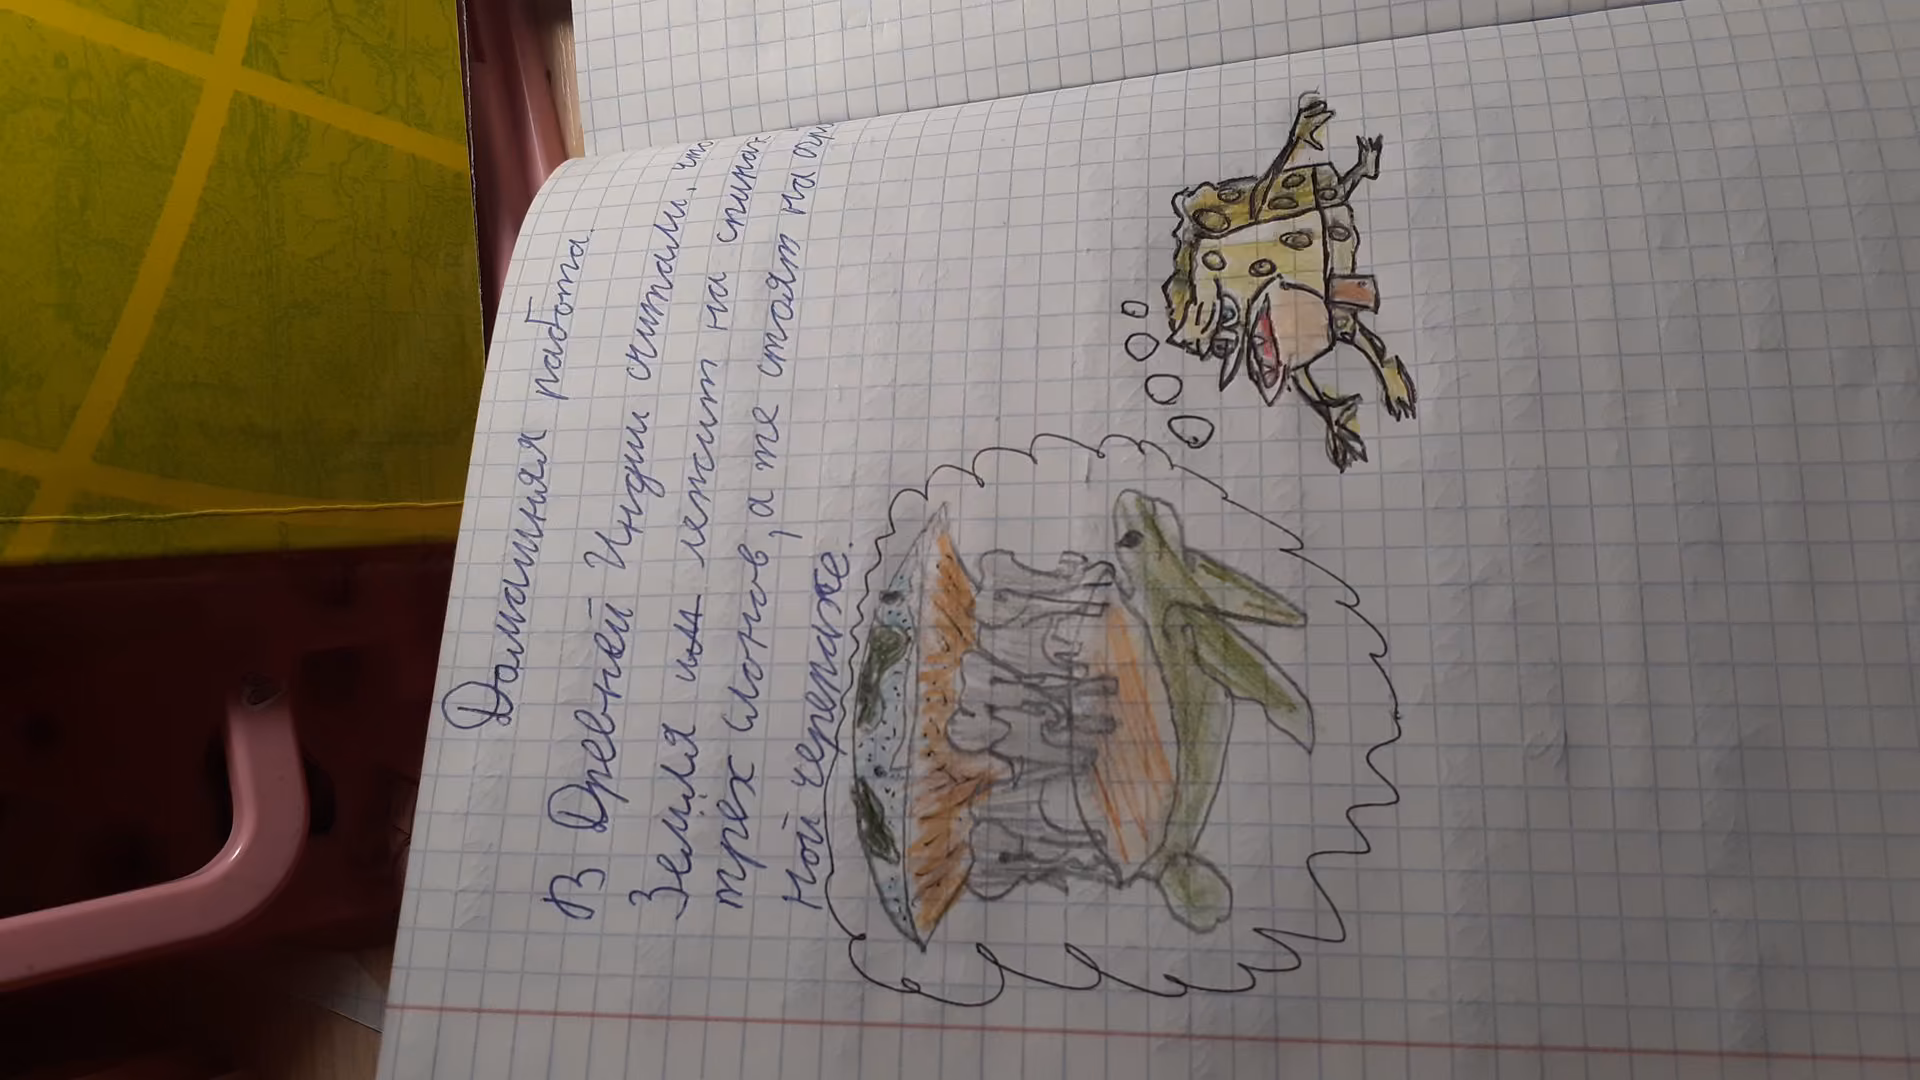 Домашняя работа.
В Древней Индии считали, что
Земля лежит на спинах
трех слонов, а те стоят на огр
ной черепахе.